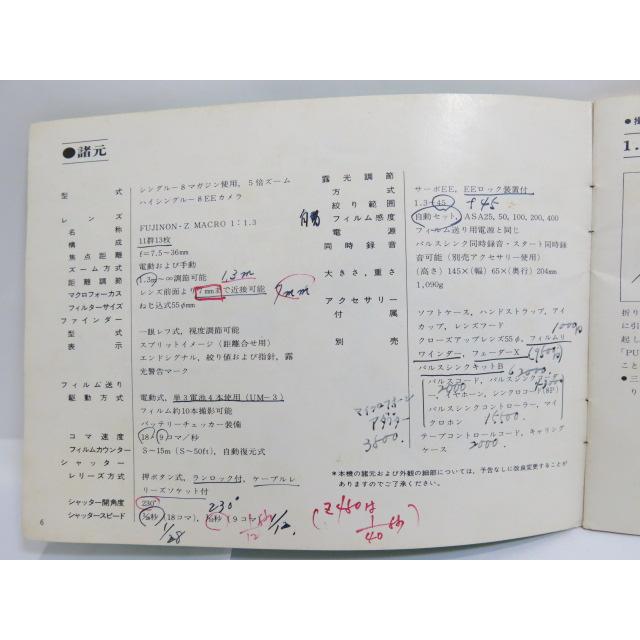 ●諸元
型式 シングル－8マガジン使用，5倍ズーム
ハイシングル－8EEカメラ
レンズ
名称 FUJINON－Z MACRO 1：1.3
構成 11群13枚
焦点距離 f＝7.5～36mm
ズーム方式 電動および手動
距離調節 1.3m～∞調節可能 1.3m
マクロフォーカス レンズ前面より7mmまで近接可能 7mm
フィルターサイズ ねじ込式55φmm
ファインダー
型式 一眼レフ式，視度調節可能
表示 スプリットイメージ（距離合せ用）
エンドシグナル，絞り値および指針，露
光警告マーク
フィルム送り
駆動方式 電動式，単3電池4本使用（UM－3）
フィルム約10本撮影可能
バッテリーチェッカー装備
コマ速度 18，9コマ／秒
フィルムカウンター S～15m（S～50ft），自動復元式
シャッター
レリーズ方式 押ボタン式，ランロック付，ケーブルレ
リーズソケット付
シャッター開角度 230° 230°
シャッタースピード 秒（18コマ），秒（9コマ） 1/12
1/28
(Z450は 1/40秒)
6
露光調節
方式 サーボEE，EEロック装置付
絞り範囲 1.3－45 f45
自動 フィルム感度 自動セット，ASA25, 50, 100, 200, 400
電源 フィルム送り用電源と同じ
同時録音 パルスシンク同時録音・スタート同時録
音可能（別売アクセサリー使用）
大きさ，重さ （高さ）145×（幅）65×（奥行）204mm
1,090g
アクセサリー
付属 ソフトケース，ハンドストラップ，アイ
カップ，レンズフード
別売 クローズアップレンズ55φ，フィルムリ
ワインダー，フェーダーX
パルスシンキットB
パルスコード，パルスシンクブー
，イヤホーン，シンクロコード(8P)
パルスシンクコントローラー，マイ
クロホン 15500
テープコントロールコード，キャリング
ケース 2000
3600
＊本機の諸元および外観の細部については，予告なしに改良変更することが
ありますのでご了承ください。
1.